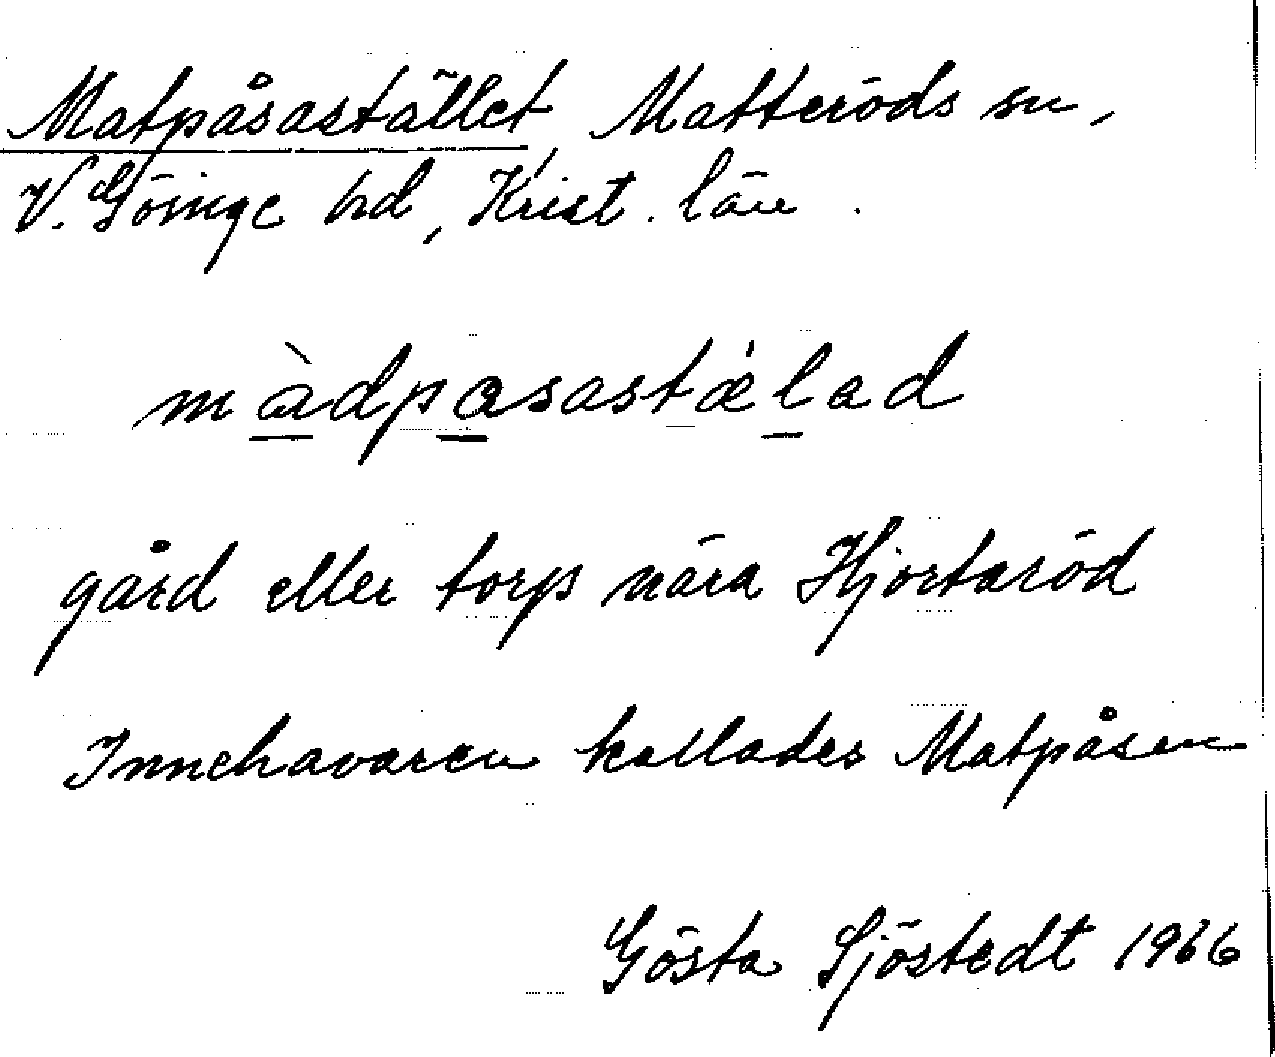 Matpåsastället, Matteröds sn,
V. Göinge hd, Krist. län.
màdpasastǽlad
gård eller torp nära Hjortaröd
Innehavaren kallades Matpåsen
Gösta Sjöstedt 1966